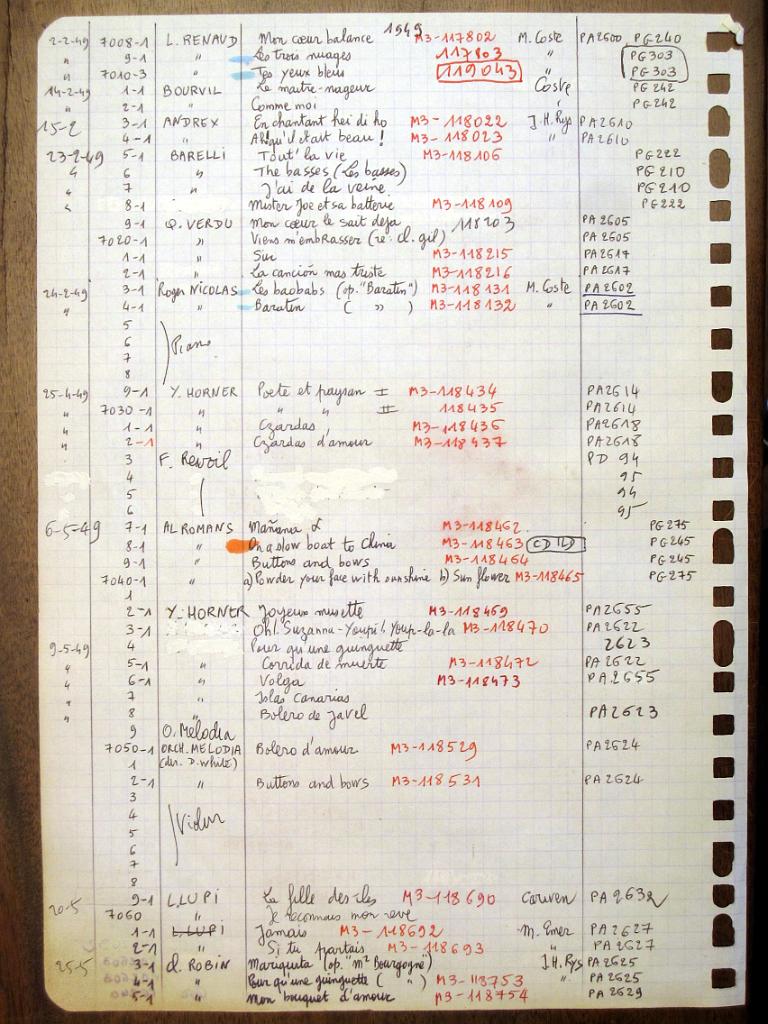 1949
2-2-49 7008-1 L. RENAUD Mon cœur balance M3-117802 M. Coste PA2600 PG240
" 9-1 " Les trois nuages 117803 " PG303
" 7010-3 " Tes yeux bleus 119043 " PG303
14-2-49 1-1 BOURVIL Le maitre-nageur Coste PG242
" 2-1 " Comme moi " PG242
15-2 3-1 ANDREX En chantant hei di ho M3-118022 J.H. Rys PA2610
4-1 " Ah! qu'il était beau! M3-118023 " PA2610
23-2-49 5-1 BARELLI Tout' la vie M3-118106 PG222
" 6 " The basses (Les basses) PG210
" 7 " J'ai de la veine PG210
" 8-1 Mister Joe et sa batterie M3-118109 PG222
9-1 Q. VERDU Mon cœur le sait deja 118203 PA2605
7020-1 " Viens m'embRasser (re: cl. gil) PA2605
1-1 " Sur M3-118215 PA2617
2-1 " La canción mas triste M3-118216 PA2617
24-2-49 3-1 Roger NICOLAS Les baobabs (op. "Baratin") M3-118131 M. Coste PA2602
" 4-1 " Baratin ( " ) M3-118132 " PA2602
5
6 Piano
7
8
25-4-49 9-1 Y. HORNER Poete et paysan I M3-118434 PA2614
" 7030-1 " " " II 118435 PA2614
" 1-1 " Czardas M3-118436 PA2618
" 2-1 " Czardas d'amour M3-118437 PA2618
3 F. Revoil PD 94
4 95
5 94
6 95
6-5-49 7-1 AL ROMANS Mañana M3-118462 PG275
8-1 " On a slow boat to China M3-118463 CD ILD PG245
9-1 " Buttons and bows M3-118464 PG245
7040-1 " a) Powder your face with sunshine b) Sun flower M3-118465 PG275
1
2-1 Y. HORNER Joyeux musette M3-118469 PA2655
3-1 Oh! Suzanna-Youpi! Youp-la-la M3-118470 PA2622
9-5-49 4 Pour qu'une guinguette 2623
" 5-1 " Corrida de muerte M3-118472 PA2622
" 6-1 " Volga M3-118473 PA2655
" 7 " Islas Canarias
" 8 " Bolero de Javel PA2623
9 O. Melodia
7050-1 ORCH. MELODIA Bolero d'amour M3-118529 PA2624
1 (dir. D. White)
2-1 " Buttons and bows M3-118531 PA2624
3
4 Violon
5
6
7
8
20-5 9-1 L.LUPI La fille des iles M3-118690 Couven PA2632
7060 " Je reconnais mon reve
1-1 L.LUPI Jamais M3-118692 M. Emer PA2627
2-1 " Si tu partais M3-118693 " PA2627
25-5 3-1 d. ROBIN Mariquita (op. "Mr Bourgogne") J.H. Rys PA2625
4-1 " Pour qu'une guinguette ( " ) M3-118753 " PA2625
5-1 " Mon bouquet d'amour M3-118754 PA2629